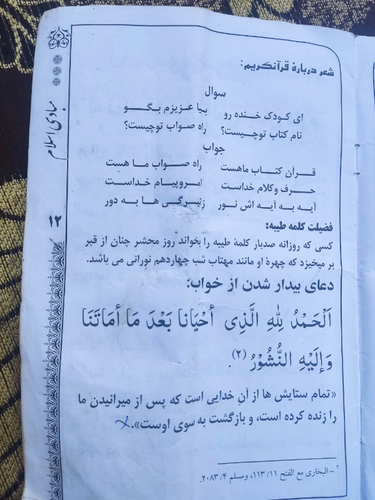 شعر دربارهٔ قرآنکریم:
سوال
ای کودک خنده رو بیا عزیزم بگو
نام کتاب توچیست؟ راه صواب توچیست؟
جواب
قرآن کتاب ماهست راه صواب ما هست
حرف وکلام خداست امروپیام خداست
آیه به آیه اش نور زتیرگی ها به دور
فضیلت کلمه طیبه:
کسی که روزانه صدبار کلمهٔ طیبه را بخواند روز محشر چنان از قبر
بر میخیزد که چهرهٔ او مانند مهتاب شب چهاردهم نورانی می باشد.
دعای بیدار شدن از خواب:
اَلْحَمْدُ لِلّٰهِ الَّذِی أَحْیَانَا بَعْدَ مَا أَمَاتَنَا
وَإِلَیْهِ النُّشُوْرُ (۲).
«تمام ستایش ها از آنِ خدایی است که پس از میرانیدن ما
را زنده کرده است، و بازگشت به سوی اوست».
۲ – البخاری مع الفتح ۱۱/ ۱۱۳، ومسلم ۴/ ۲۰۸۳.
مبادی اسلام
۱۲